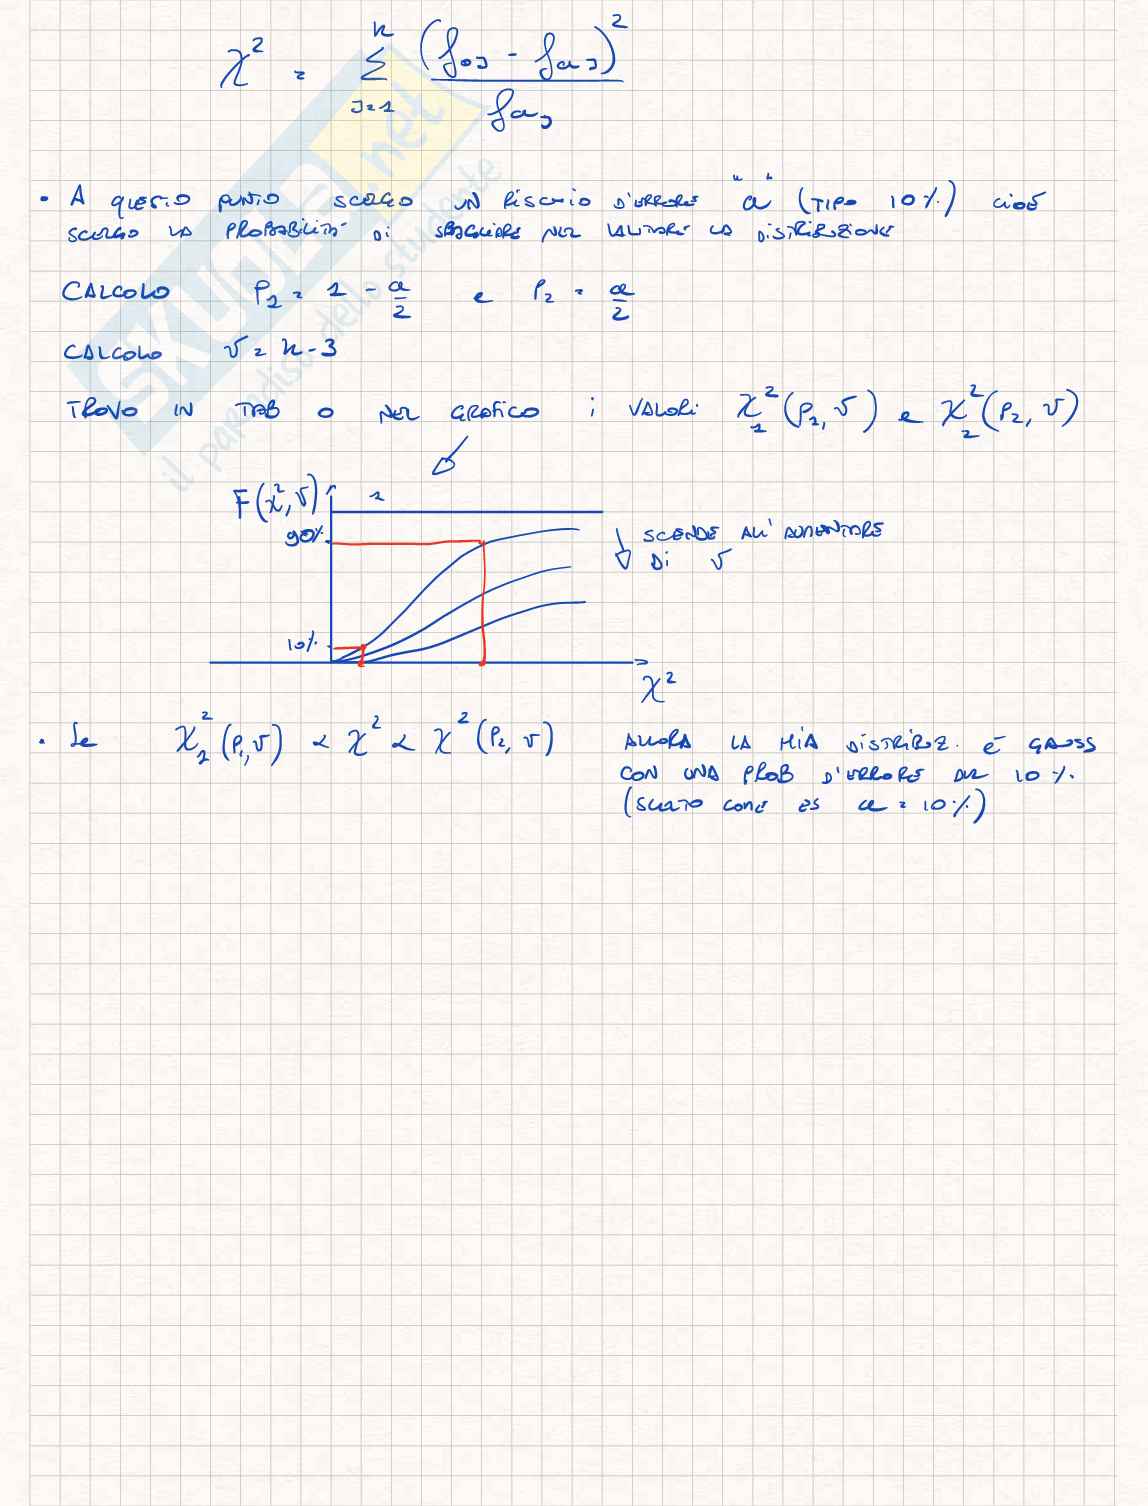 χ² = Σ_{J=1}^{n} (f_{oJ} - f_{aJ})² / f_{aJ}
• A QUESTO PUNTO SCELGO UN RISCHIO D'ERRORE "a" (TIPO 10%) CIOÈ
SCELGO LA PROBABILITÀ DI SBAGLIARE NEL VALUTARE LA DISTRIBUZIONE
CALCOLO P₁ = 1 - a/2 e P₂ = a/2
CALCOLO ν = n - 3
TROVO IN TAB O NEL GRAFICO i VALORI χ₁²(P₁, ν) e χ₂²(P₂, ν)
F(χ², ν) 1
90%
SCENDE ALL'AUMENTARE
DI ν
10%
χ²
• Se χ₁²(P₁, ν) < χ² < χ²(P₂, ν) ALLORA LA MIA DISTRIBUZ. È GAUSS
CON UNA PROB D'ERRORE DEL 10%
(SCELTO COME ES a = 10%)
SKUOLA.net
il paradiso dello studente